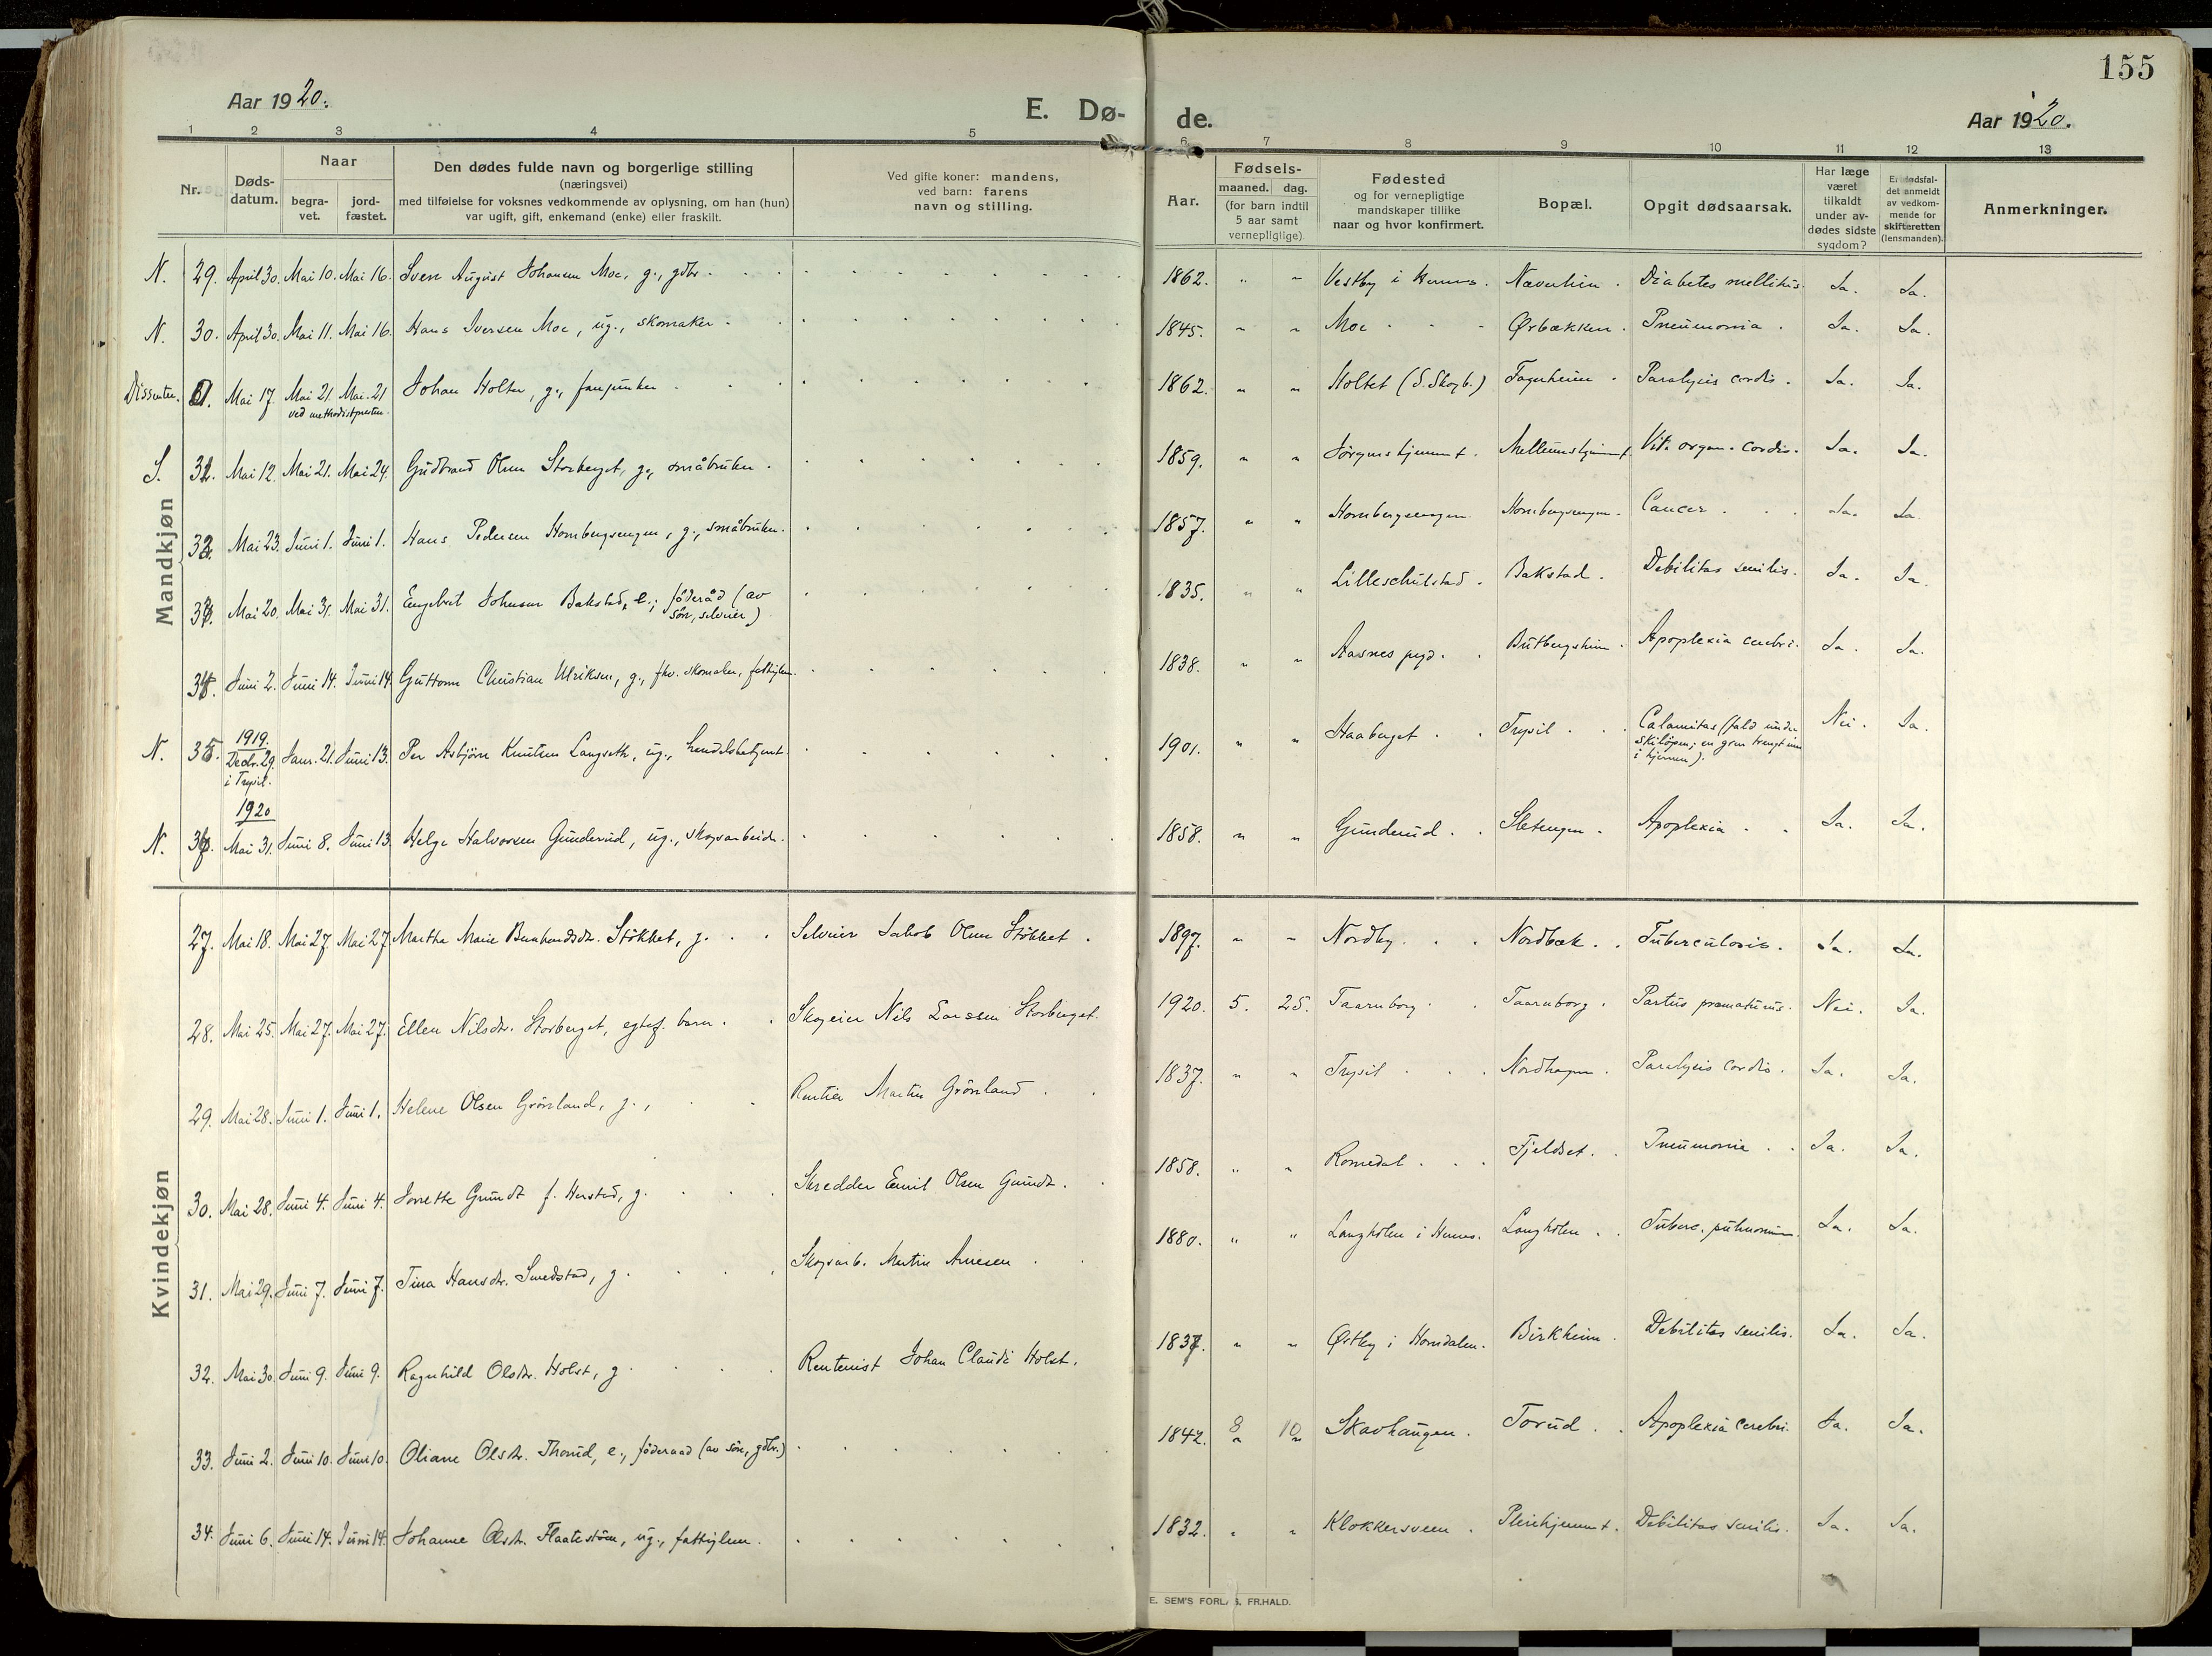 155
Aar 1920.
E. Dø- de.
Aar 1920.
1 2 3 4 5 6 7 8 9 10 11 12 13
Nr.
Døds-
datum.
Naar
begra-
vet.
jord-
fæstet.
Den dødes fulde navn og borgerlige stilling
(næringsvei)
med tilføielse for voksnes vedkommende av oplysning, om han (hun)
var ugift, gift, enkemand (enke) eller fraskilt.
Ved gifte koner: mandens,
ved barn: farens
navn og stilling.
Aar.
Fødsels-
maaned. dag.
(for barn indtil
5 aar samt
vernepligtige)
Fødested
og for vernepligtige
mandskaper tillike
naar og hvor konfirmert.
Bopæl.
Opgit dødsaarsak.
Har læge
været
tilkaldt
under av-
dødes sidste
sygdom?
Er dødsfal-
det anmeldt
av vedkom-
mende for
skifteretten
(lensmanden).
Anmerkninger.
Mandkjøn
N. 29. April 30. Mai 10. Mai 16. Sven August Johansen Moe, g., gdbr. 1862. " " Vestby i Diabetes mellitus. Ja. Ja.
N. 30. April 30. Mai 11. Mai 16. Hans Iversen Moe, ug., skomaker 1845. " " Moe Ørbækken. Pneumonia. Ja. Ja.
Dissenter. 31. Mai 17. Mai 21. Mai 21 Johan Holter, g., fanejunker 1862. " " Holtet (S. Skogb.) Fagerheim Paralysis cordis. Ja. Ja.
ved methodistpresten
S. 32. Mai 12. Mai 21. Mai 24. Gudbrand Olsen Storberget, g., småbruker. 1859. " " Vit. organ. cordis. Ja. Ja.
33. Mai 23. Juni 1. Juni 1. Hans Pedersen Hornbergsengen, g., småbruker. 1857. " " Hornbergsengen Hornbergsengen. Cancer. Ja. Ja.
Mai 20. Mai 31. Mai 31. Engebret Johnsen Bakstad, e., föderåd (av
søn, selveier) 1835. " " Lilleschulstad. Bakstad. Debilitas senilis. Ja. Ja.
Juni 2. Juni 14. Juni 14. Guttorm Christian Ulriksen, g., fhv. skomaker, fattiglem. 1838. " " Aasnes pgd. Butbergsheim. Apoplexia cerebri. Ja. Ja.
N. 35. 1919.
Decbr. 29.
i Trysil. Janr. 21. Juni 13. Per Asbjørn Knutsen Langseth, ug., handelsbetjent. 1901. " " Haaberget Trysil Calamitas (fald under
skiløpen; en gren trængt inn
i hjernen). Nei. Ja.
1920
N. Mai 31. Juni 8. Juni 13 Helge Halvorsen Gunderud, ug., skogsarbeider. 1858. " " Gunderud. Sletengen. Apoplexia Ja. Ja.
Kvindekjøn
27. Mai 18. Mai 27. Mai 27. Martha Marie Stökket, g. Selveier Jakob Olsen Stökket. 1897. " " Nordby. Nordbæk. Tuberculosis. Ja. Ja.
28. Mai 25. Mai 27. Mai 27. Ellen Nilsdtr. Storberget, egtef. barn. Skogeier Nils Larssen Storberget. 1920. 5. 25. Taarnborg Taarnborg. Partus præmaturus. Nei. Ja.
29. Mai 28. Juni 1. Juni 1. Helene Olsen Grönland, g., Rentier Martin Grönland 1837. " " Trysil Nordhagen. Paralysis cordis. Ja. Ja.
30. Mai 28. Juni 4. Juni 4. Jorette Grundt f. Herstad, g. Skredder Emil Olsen Grundt. 1858. " " Romedal Fjeldset. Pneumonia Ja. Ja.
31. Mai 29. Juni 7. Juni 7. Tina Hansdtr. Smedstad, g. Skogsarb. Martin Arnesen 1880. " " Langholen i Langholen Tuberc. pulmonum. Ja. Ja.
32. Mai 30. Juni 9. Juni 9. Ragnhild Olsdtr. Holst, g Rentenist Johan Claudi Holst. " " Østby i Birkheim. Debilitas senilis. Ja. Ja.
33. Juni 2. Juni 10. Juni 10. Oliane Olsdtr. Thorud, e., föderaad (av søn, gdbr.) 1842. 8 10 Skavhaugen. Torud Apoplexia cerebri. Ja. Ja.
34. Juni 6. Juni 14. Juni 14. Johanne Olsdtr. Flaatestöen, ug., fattiglem. 1832. " " Klokkersveen. Pleiehjemmet. Debilitas senilis. Ja. Ja.
E. SEM'S FORLAG, FR.HALD.